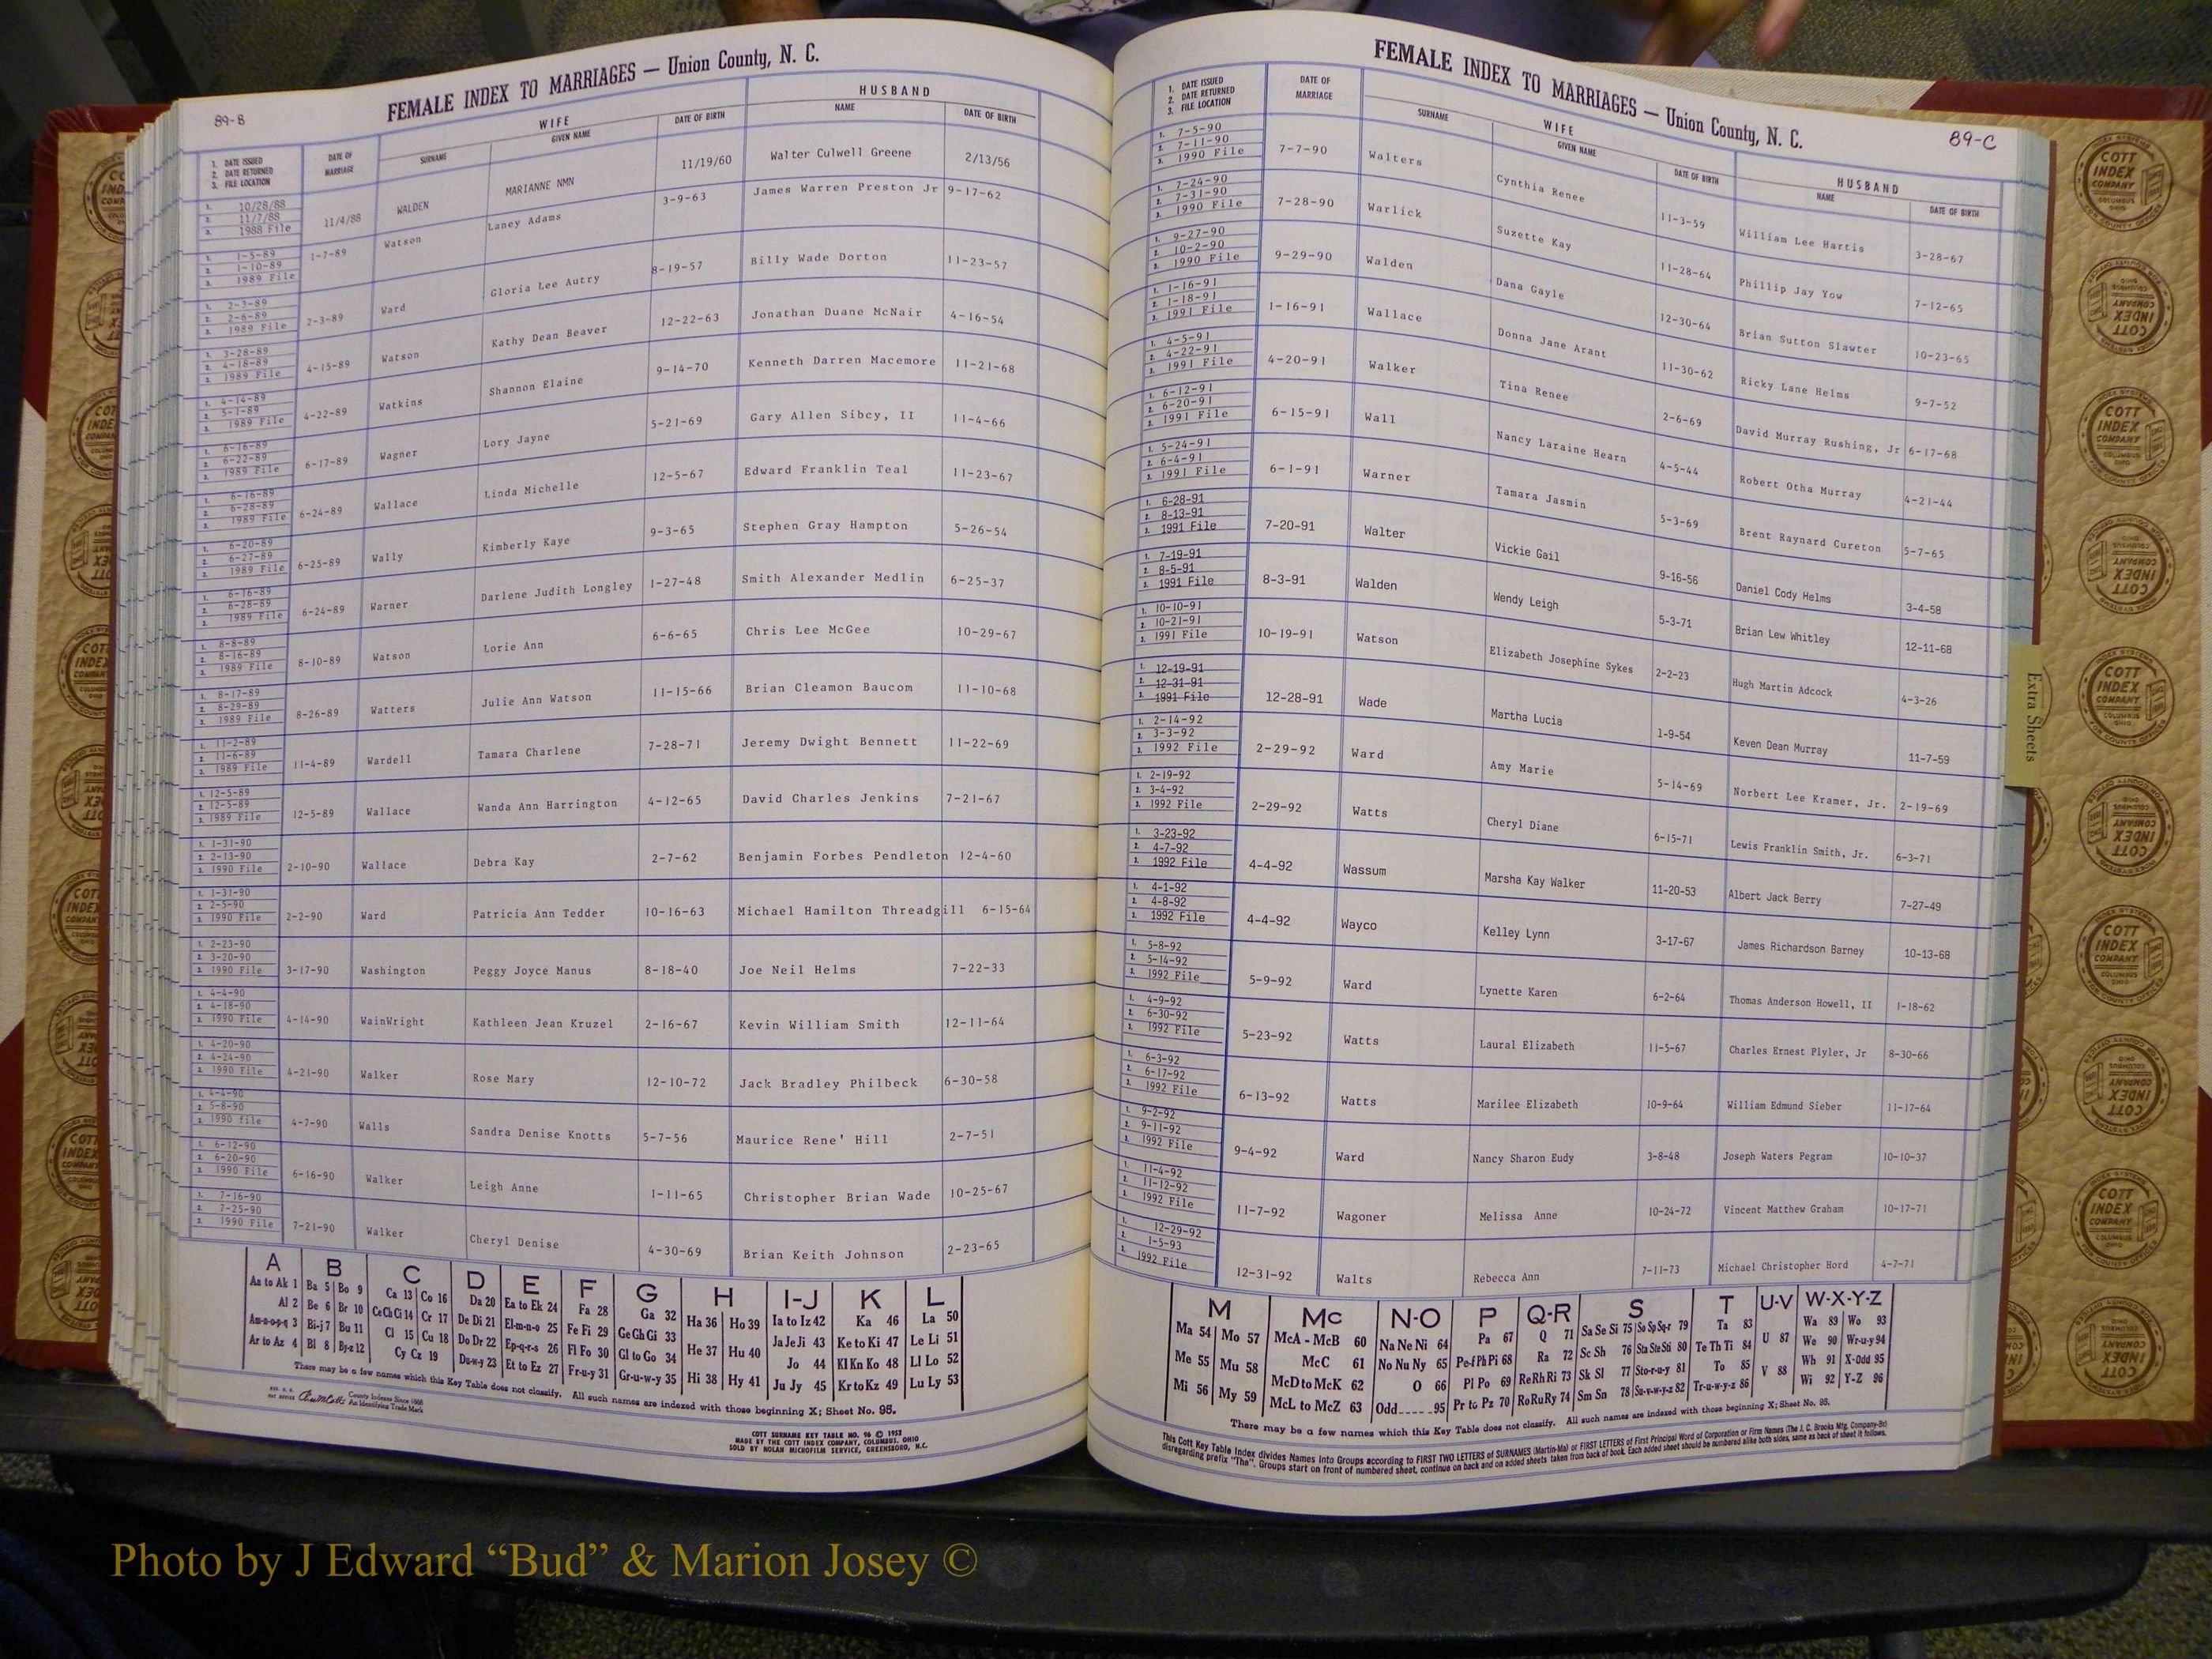 89-B
FEMALE INDEX TO MARRIAGES — Union County, N. C.
1. DATE ISSUED 2. DATE RETURNED 3. FILE LOCATION DATE OF MARRIAGE WIFE SURNAME GIVEN NAME DATE OF BIRTH HUSBAND NAME DATE OF BIRTH
1. 10/28/88 2. 11/7/88 3. 1988 File 11/4/88 WALDEN MARIANNE NMN 11/19/60 Walter Culwell Greene 2/13/56
1. 1-5-89 2. 1-10-89 3. 1989 File 1-7-89 Watson Laney Adams 3-9-63 James Warren Preston Jr 9-17-62
1. 2-3-89 2. 2-8-89 3. 1989 File 2-3-89 Ward Gloria Lee Autry 8-19-57 Billy Wade Dorton 11-23-57
1. 3-28-89 2. 4-18-89 3. 1989 File 4-15-89 Watson Kathy Dean Beaver 12-22-63 Jonathan Duane McNair 4-16-54
1. 4-14-89 2. 5-1-89 3. 1989 File 4-22-89 Watkins Shannon Elaine 9-14-70 Kenneth Darren Macemore 11-21-68
1. 6-16-89 2. 6-22-89 3. 1989 File 6-17-89 Wagner Lory Jayne 5-21-69 Gary Allen Sibcy, II 11-4-66
1. 6-16-89 2. 6-28-89 3. 1989 File 6-24-89 Wallace Linda Michelle 12-5-67 Edward Franklin Teal 11-23-67
1. 6-20-89 2. 6-27-89 3. 1989 File 6-25-89 Wally Kimberly Kaye 9-3-65 Stephen Gray Hampton 5-26-54
1. 6-16-89 2. 6-28-89 3. 1989 File 6-24-89 Warner Darlene Judith Longley 1-27-48 Smith Alexander Medlin 6-25-37
1. 8-8-89 2. 8-16-89 3. 1989 File 8-10-89 Watson Lorie Ann 6-6-65 Chris Lee McGee 10-29-67
1. 8-17-89 2. 8-29-89 3. 1989 File 8-26-89 Watters Julie Ann Watson 11-15-66 Brian Cleamon Baucom 11-10-68
1. 11-2-89 2. 11-6-89 3. 1989 File 11-4-89 Wardell Tamara Charlene 7-28-71 Jeremy Dwight Bennett 11-22-69
1. 12-5-89 2. 12-5-89 3. 1989 File 12-5-89 Wallace Wanda Ann Harrington 4-12-65 David Charles Jenkins 7-21-67
1. 1-31-90 2. 2-13-90 3. 1990 File 2-10-90 Wallace Debra Kay 2-7-62 Benjamin Forbes Pendleton 12-4-60
1. 1-31-90 2. 2-5-90 3. 1990 File 2-2-90 Ward Patricia Ann Tedder 10-16-63 Michael Hamilton Threadgill 6-15-64
1. 2-23-90 2. 3-20-90 3. 1990 File 3-17-90 Washington Peggy Joyce Manus 8-18-40 Joe Neil Helms 7-22-33
1. 4-4-90 2. 4-18-90 3. 1990 File 4-14-90 WainWright Kathleen Jean Kruzel 2-16-67 Kevin William Smith 12-11-64
1. 4-20-90 2. 4-24-90 3. 1990 File 4-21-90 Walker Rose Mary 12-10-72 Jack Bradley Philbeck 6-30-58
1. 4-4-90 2. 5-8-90 3. 1990 file 4-7-90 Walls Sandra Denise Knotts 5-7-56 Maurice Rene' Hill 2-7-51
1. 6-12-90 2. 6-20-90 3. 1990 File 6-16-90 Walker Leigh Anne 1-11-65 Christopher Brian Wade 10-25-67
1. 7-16-90 2. 7-25-90 3. 1990 File 7-21-90 Walker Cheryl Denise 4-30-69 Brian Keith Johnson 2-23-65
A B C D E F G H I-J K L
Aa to Ak 1 Ba 5 Bo 9 Ca 13 Co 16 Da 20 Ea to Ek 24 Fa 28 Ga 32 Ha 36 Ho 39 Ia to Iz 42 Ka 46 La 50
Al 2 Be 6 Br 10 Ce Ch Ci 14 Cr 17 De Di 21 El-m-n-o 25 Fe Fi 29 Ge Gh Gi 33 He 37 Hu 40 Ja Je Ji 43 Ke to Ki 47 Le Li 51
Am-n-o-p-q 3 Bi-j 7 Bu 11 Cl 15 Cu 18 Do Dr 22 Ep-q-r-s 26 Fl Fo 30 Gl to Go 34 Hi 38 Hy 41 Jo 44 Kl Kn Ko 48 Ll Lo 52
Ar to Az 4 Bl 8 By-z 12 Cy Cz 19 Du-w-y 23 Et to Ez 27 Fr-u-y 31 Gr-u-w-y 35 Ju Jy 45 Kr to Kz 49 Lu Ly 53
There may be a few names which this Key Table does not classify. All such names are indexed with those beginning X; Sheet No. 95.
County Indexes Since 1888
An Identifying Trade Mark
COTT SURNAME KEY TABLE NO. 96 © 1953
MADE BY THE COTT INDEX COMPANY, COLUMBUS, OHIO
SOLD BY NOLAN MICROFILM SERVICE, GREENSBORO, N.C.
FEMALE INDEX TO MARRIAGES — Union County, N. C.
89-C
1. DATE ISSUED 2. DATE RETURNED 3. FILE LOCATION DATE OF MARRIAGE WIFE SURNAME GIVEN NAME DATE OF BIRTH HUSBAND NAME DATE OF BIRTH
1. 7-5-90 2. 7-11-90 3. 1990 File 7-7-90 Walters Cynthia Renee 11-3-59 William Lee Hartis 3-28-67
1. 7-24-90 2. 7-31-90 3. 1990 File 7-28-90 Warlick Suzette Kay 11-28-64 Phillip Jay Yow 7-12-65
1. 9-27-90 2. 10-2-90 3. 1990 File 9-29-90 Walden Dana Gayle 12-30-64 Brian Sutton Slawter 10-23-65
1. 1-16-91 2. 1-18-91 3. 1991 File 1-16-91 Wallace Donna Jane Arant 11-30-62 Ricky Lane Helms 9-7-52
1. 4-5-91 2. 4-22-91 3. 1991 File 4-20-91 Walker Tina Renee 2-6-69 David Murray Rushing, Jr 6-17-68
1. 6-12-91 2. 6-20-91 3. 1991 File 6-15-91 Wall Nancy Laraine Hearn 4-5-44 Robert Otha Murray 4-21-44
1. 5-24-91 2. 6-4-91 3. 1991 File 6-1-91 Warner Tamara Jasmin 5-3-69 Brent Raynard Cureton 5-7-65
1. 6-28-91 2. 8-13-91 3. 1991 File 7-20-91 Walter Vickie Gail 9-16-56 Daniel Cody Helms 3-4-58
1. 7-19-91 2. 8-5-91 3. 1991 File 8-3-91 Walden Wendy Leigh 5-3-71 Brian Lew Whitley 12-11-68
1. 10-10-91 2. 10-21-91 3. 1991 File 10-19-91 Watson Elizabeth Josephine Sykes 2-2-23 Hugh Martin Adcock 4-3-26
1. 12-19-91 2. 12-31-91 3. 1991 File 12-28-91 Wade Martha Lucia 1-9-54 Keven Dean Murray 11-7-59
1. 2-14-92 2. 3-3-92 3. 1992 File 2-29-92 Ward Amy Marie 5-14-69 Norbert Lee Kramer, Jr. 2-19-69
1. 2-19-92 2. 3-4-92 3. 1992 File 2-29-92 Watts Cheryl Diane 6-15-71 Lewis Franklin Smith, Jr. 6-3-71
1. 3-23-92 2. 4-7-92 3. 1992 File 4-4-92 Wassum Marsha Kay Walker 11-20-53 Albert Jack Berry 7-27-49
1. 4-1-92 2. 4-8-92 3. 1992 File 4-4-92 Wayco Kelley Lynn 3-17-67 James Richardson Barney 10-13-68
1. 5-8-92 2. 5-14-92 3. 1992 File 5-9-92 Ward Lynette Karen 6-2-64 Thomas Anderson Howell, II 1-18-62
1. 4-9-92 2. 6-30-92 3. 1992 File 5-23-92 Watts Laural Elizabeth 11-5-67 Charles Ernest Plyler, Jr 8-30-66
1. 6-3-92 2. 6-17-92 3. 1992 File 6-13-92 Watts Marilee Elizabeth 10-9-64 William Edmund Sieber 11-17-64
1. 9-2-92 2. 9-11-92 3. 1992 File 9-4-92 Ward Nancy Sharon Eudy 3-8-48 Joseph Waters Pegram 10-10-37
1. 11-4-92 2. 11-12-92 3. 1992 File 11-7-92 Wagoner Melissa Anne 10-24-72 Vincent Matthew Graham 10-17-71
1. 12-29-92 2. 1-5-93 3. 1992 File 12-31-92 Walts Rebecca Ann 7-11-73 Michael Christopher Hord 4-7-71
M Mc N-O P Q-R S T U-V W-X-Y-Z
Ma 54 Mo 57 McA - McB 60 Na Ne Ni 64 Pa 67 Q 71 Sa Se Si 75 So Sp Sq-r 79 Ta 83 U 87 Wa 89 Wo 93
Me 55 Mu 58 McC 61 No Nu Ny 65 Pe-f Ph Pi 68 Ra 72 Sc Sh 76 Sta Ste Sti 80 Te Th Ti 84 V 88 We 90 Wr-u-y 94
Mi 56 My 59 McD to McK 62 O 66 Pl Po 69 Re Rh Ri 73 Sk Sl 77 Sto-r-u-y 81 To 85 Wh 91 X-Odd 95
McL to McZ 63 Odd 95 Pr to Pz 70 Ro Ru Ry 74 Sm Sn 78 Su-v-w-y-z 82 Tr-u-w-y-z 86 Wi 92 Y-Z 96
There may be a few names which this Key Table does not classify. All such names are indexed with those beginning X; Sheet No. 95.
This Cott Key Table Index divides Names into Groups according to FIRST TWO LETTERS of SURNAMES (Martin-Ma) or FIRST LETTERS of First Principal Word of Corporation or Firm Names (The J. C. Brooks Mfg. Company-Br)
disregarding prefix "The". Groups start on front of numbered sheet, continue on back and on added sheets taken from back of book. Each added sheet should be numbered alike both sides, same as back of sheet it follows.
Extra Sheets
COTT INDEX COMPANY COLUMBUS OHIO
Photo by J Edward “Bud” & Marion Josey ©